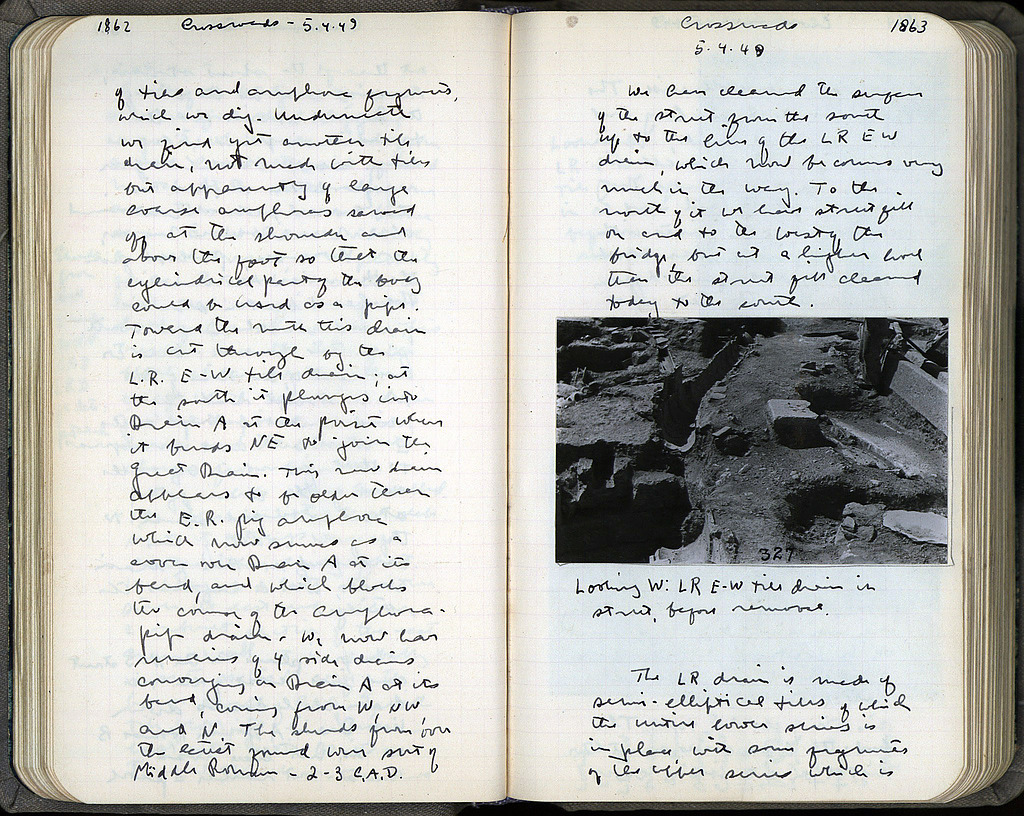 1862 Crossroads - 5.4.49
of tiles and amphora fragments,
which we dig. Underneath
we find yet another tile
drain, not made with tiles
but apparently of large
coarse amphoras sawed
off at the shoulder and
above the foot so that the
cylindrical part of the body
could be used as a pipe.
Toward the north this drain
is cut through by the
L.R. E-W tile drain; at
the south it plunges into
Drain A at the point where
it bends NE to join the
Great Drain. This new drain
appears to be older than
the E.R. big amphora
which now serves as a
cover over Drain A at its
bend, and which blocks
the coming of the amphora-
pipe drain. We now have
remains of 4 side drains
converging on Drain A at its
bend, coming from W, NW,
and N. The sherds from over
the latest found were part of
Middle Roman - 2-3 C.A.D.
Crossroads 1863
5.4.49
We have cleared the surface
of the street from the south
up to the line of the LR E W
drain, which now becomes very
much in the way. To the
north of it we have street fill
on and to the west of the
bridge, but at a higher level
than the street fill cleared
today to the south.
327
Looking W: LR E-W tile drain in
street, before removal.
The LR drain is made of
semi-elliptical tiles of which
the entire lower series is
in place with some fragments
of the upper series which is